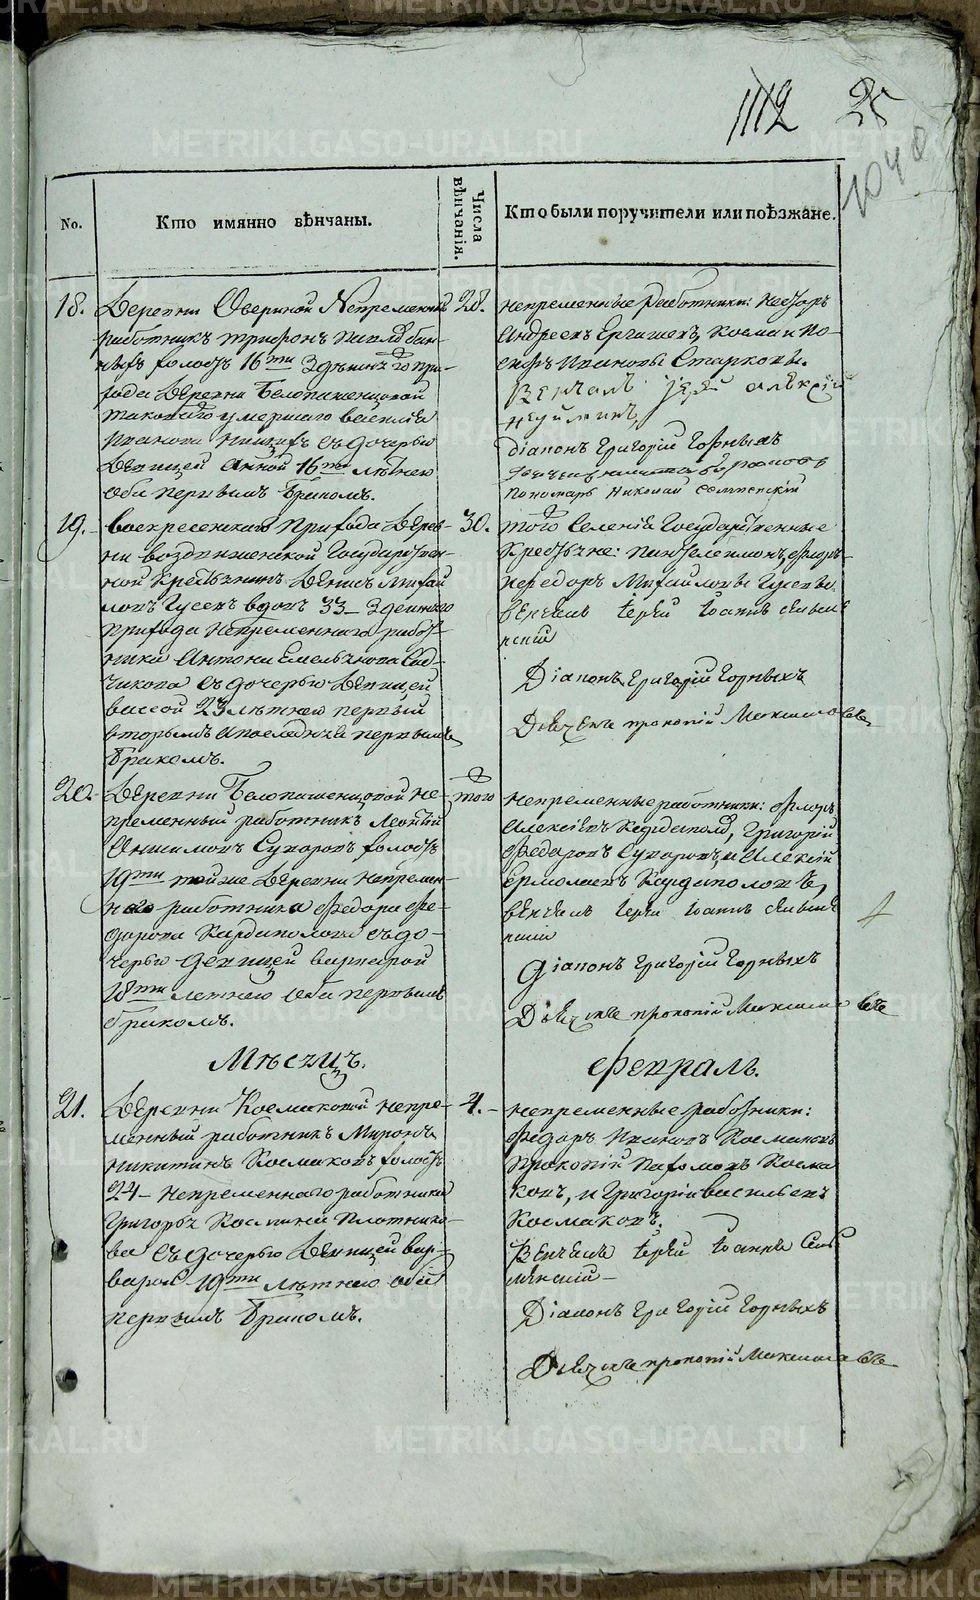 METRIKI.GASO-URAL.RU
1112 25
1040
No.
Кто имянно вѣнчаны.
Числа вѣнчанія.
Кто были поручители или поѣзжане.
18.
Деревни Овериной Непременный
работникъ Трифонъ
холостъ 16ти Здешняго при-
хода Деревни Белопашенцовой
таковаго умершаго василия
Иванова съ дочерью
Девицей Анной 16ти летнею
оба первымъ бракомъ.
28.
непременные работники:
Андреевъ Козма и Ио-
сифъ Ивановы Старковы.
Венчалъ Іерей алексій
Діаконъ Григорій Горныхъ
Пономарь Николай
19.
воскресенскаго прихода Дерев-
ни воздвиженской Государствен-
ной Крестьянинъ Денисъ Михай
ловъ Гусевъ вдовъ 33 Здешняго
прихода Непременнаго работ-
ника Антона Емельянова Сад-
чикова съ дочерью Девицей
вассой 23 летнею первый
вторымъ а последняя первымъ
бракомъ.
30.
того Селенія Государственные
Крестьяне: Пантелеймонъ, Флоръ
и Федоръ Михайловы Гусевы.
венчалъ Іерей Іоаннъ Сельме
нскій
Діаконъ Григорій Горныхъ
Дьячекъ прокопій Максимовъ
20.
Деревни Белопашенцовой не-
пременный работникъ Леонтий
Онисимовъ Сухоровъ холостъ
19ти той же Деревни непремен-
наго работника Федора Фе-
дорова Кардаполова съ до-
черью Девицей варварой
18ти летнею оба первымъ
бракомъ.
того
непременные работники: Флоръ
Алексеевъ Кардаполовъ, Григорій
Федоровъ Сухоровъ, и Алексий
Ермолаевъ Кардаполовъ,
венчалъ Іерей Іоаннъ Сельме
нскій
Діаконъ Григорій Горныхъ
Дьячекъ прокопій Максимовъ
Месяцъ.
Февраль.
21.
Деревни Космаковой непре-
менный работникъ Миронъ
никитинъ Космаковъ холостъ
24 непременнаго работника
Григорья Космина Плотнико-
ва съ дочерью Девицей вар-
варой 19ти летнею обои
первымъ бракомъ.
4.
непременные работники:
Федоръ Ивановъ Космаковъ
Прокопій Пахомовъ Косма
ковъ, и Григорій васильевъ
Космаковъ.
Венчалъ Іерей Іоаннъ Сель
менскій
Діаконъ Григорій Горныхъ
Дьячекъ прокопій Максимовъ